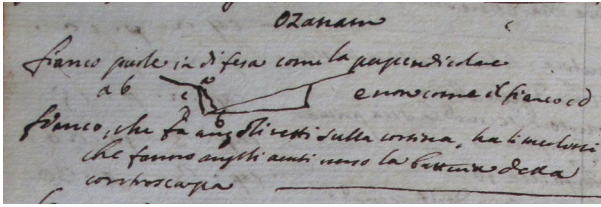 Ozanam
fianco parte in difesa come la perpendicolare
a b e non come il fianco c d
a
c
b
fianco, che fa angoli retti sulla cortina, ha
che fanno angoli acuti verso la batteria della
controscarpa